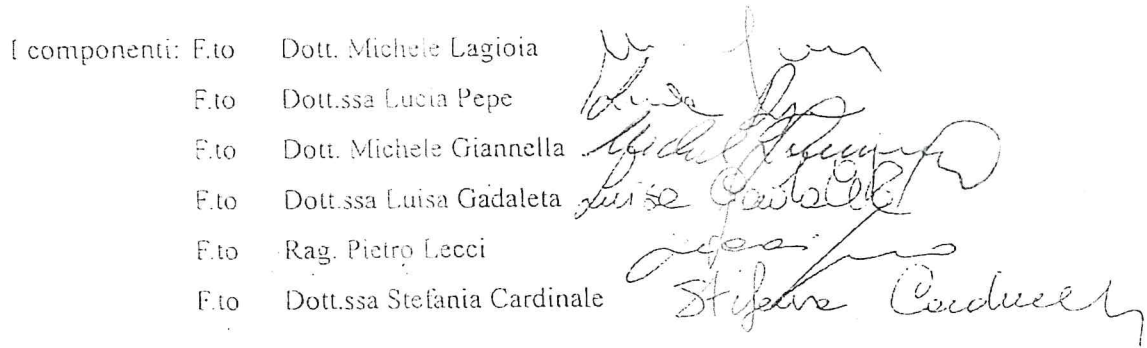 I componenti: F.to Dott. Michele Lagioia
F.to Dott.ssa Lucia Pepe
F.to Dott. Michele Giannella
F.to Dott.ssa Luisa Gadaleta Luisa Gadaleta
F.to Rag. Pietro Lecci
F.to Dott.ssa Stefania Cardinale Stefania